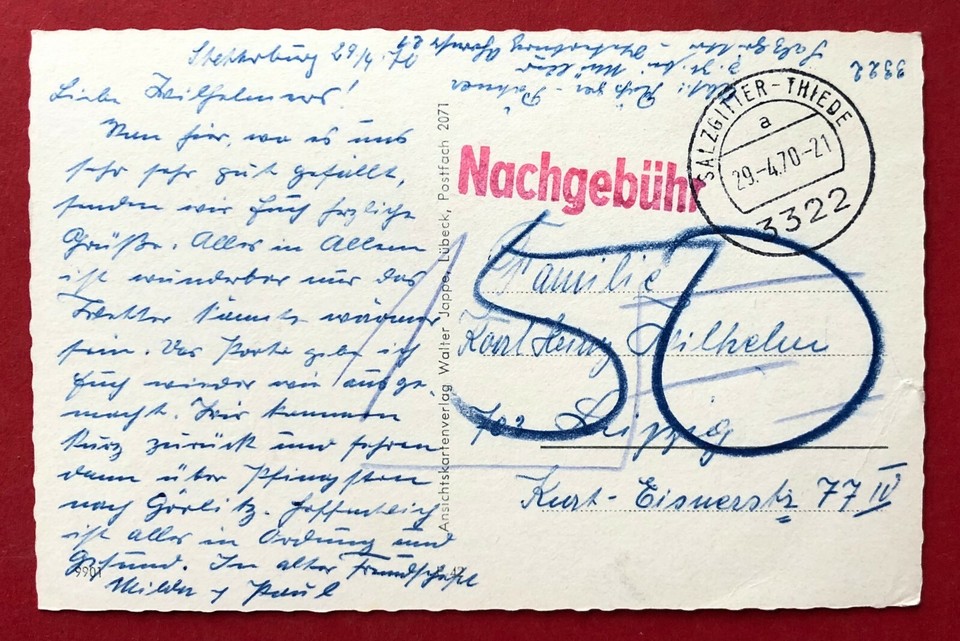 Stetterburg 29/4. 70
Liebe Wilhelmers!
Nun hier, wo es uns
sehr sehr gut gefällt,
senden wir Euch herzliche
Grüße. Alles in Allem
ist wunderbar nur das
Wetter könnte wärmer
sein. Das Porto gebe ich
Euch wieder wie ausge-
macht. Wir kommen
kurz zurück und fahren
dann über Pfingsten
nach Görlitz. Hoffentlich
ist alles in Ordnung und
Gesund. In alter Freundschaft
Milda u Paul
9901
Ansichtskartenverlag Walter Jappe, Lübeck, Postfach 2071
3322
Nachgebühr
SALZGITTER-THIEDE
a
29.-4.70-21
3322
50
Familie
Karl Heinz Wilhelm
702 Leipzig
Kurt-Eisnerstr 77 IV